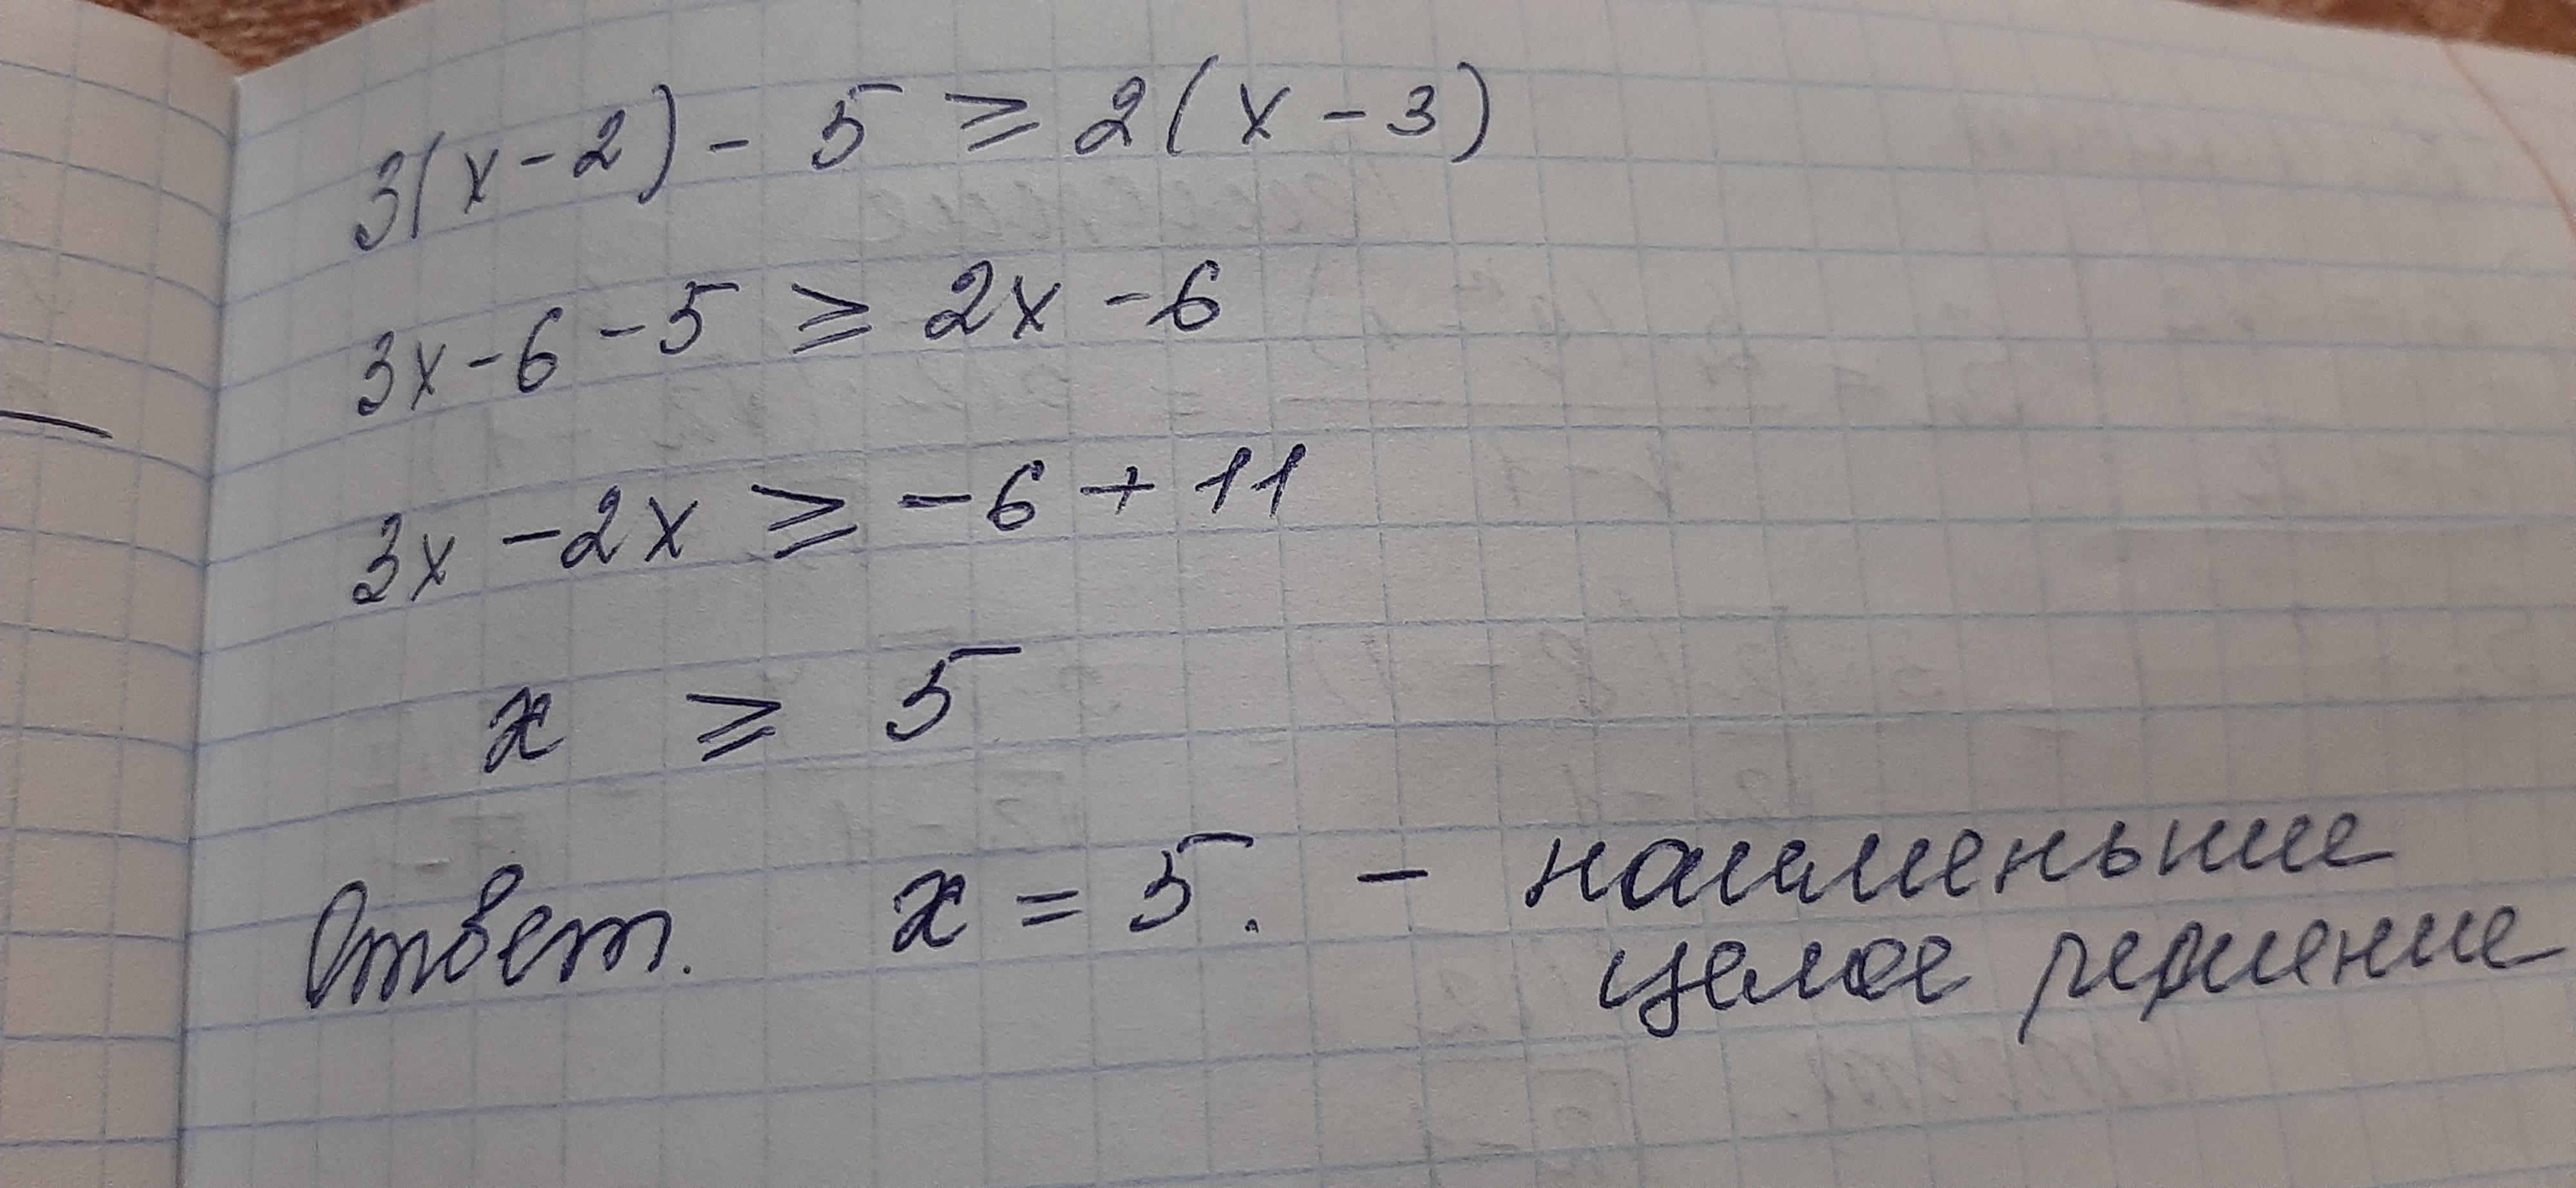 3(x-2) - 5 ≥ 2(x-3)
3x-6-5 ≥ 2x-6
3x-2x ≥ -6+11
x ≥ 5
Ответ. x = 5. - наименьшие
целое решение